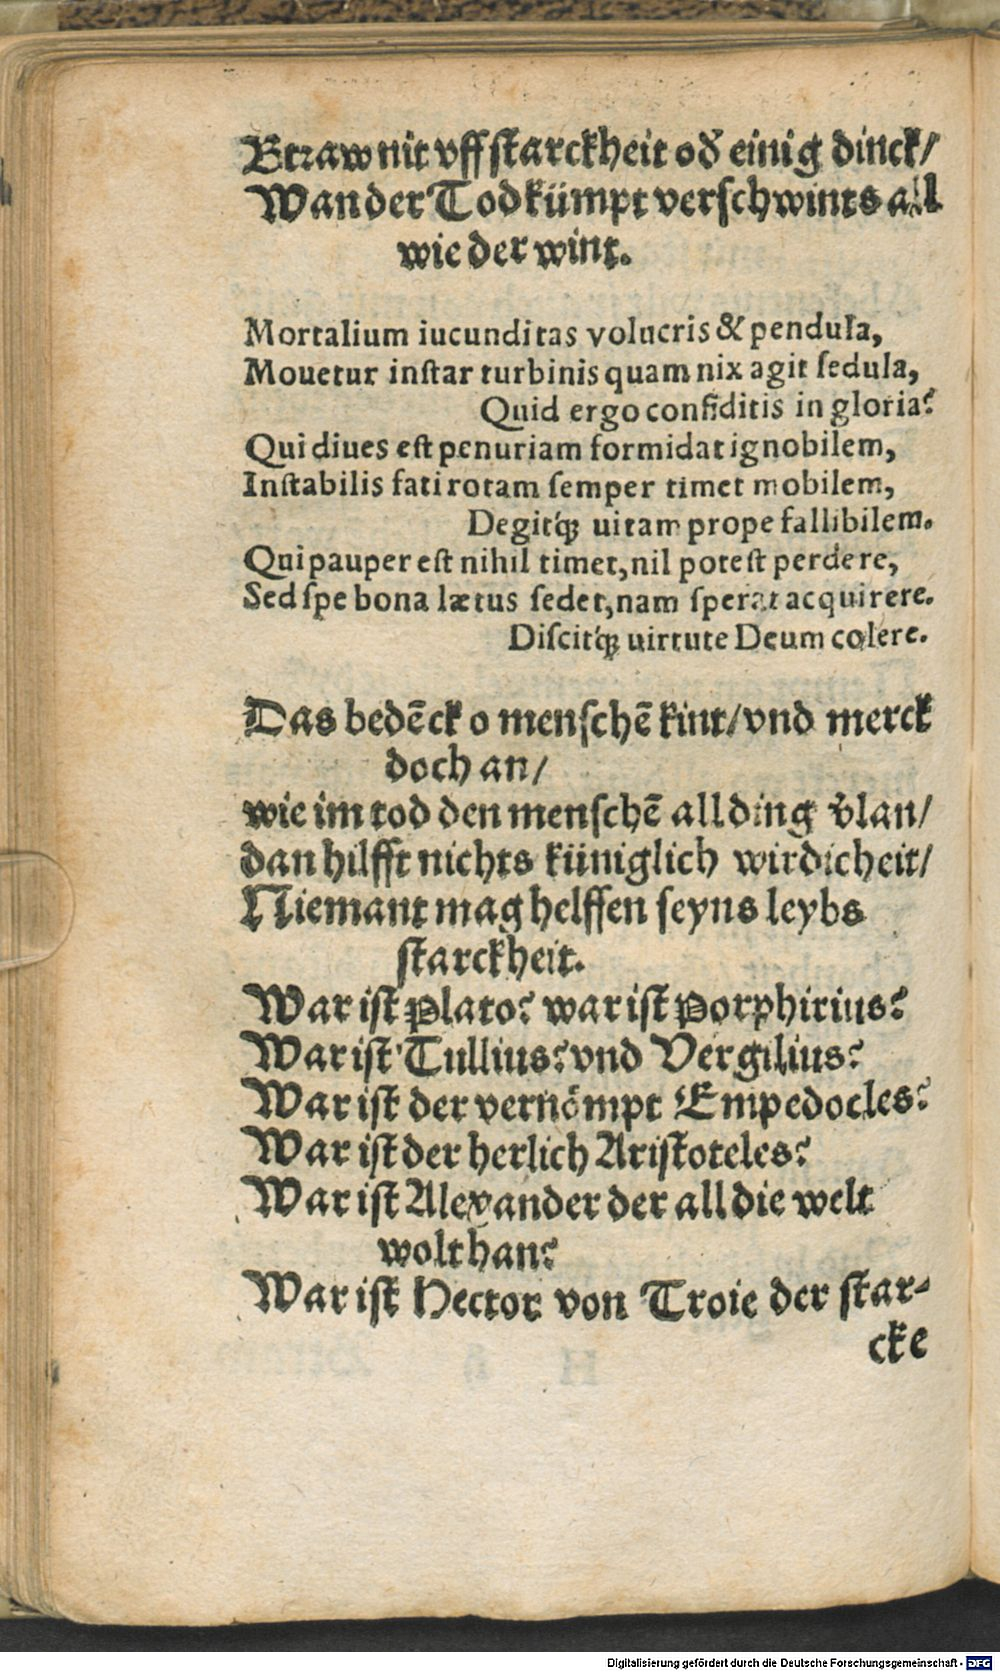 Btraw nit vff starckheit oď einig dinck/
Wan der Tod kümpt verschwints all
wie der wint.
Mortalium iucunditas volucris & pendula,
Mouetur instar turbinis quam nix agit sedula,
Quid ergo confiditis in gloria?
Qui diues est penuriam formidat ignobilem,
Instabilis fati rotam semper timet mobilem,
Degitq́ꝫ uitam prope fallibilem.
Qui pauper est nihil timet, nil potest perdere,
Sed spe bona lætus sedet, nam sperat acquirere.
Discitq́ꝫ uirtute Deum colere.
Das bedēck o menschē kint/ vnd merck
doch an/
wie im tod den menschē all ding v̈lan/
dan hilfft nichts küniglich wirdicheit/
Niemant mag helffen seyns leybs
starckheit.
War ist Plato? war ist Porphirius?
War ist Tullius? vnd Vergilius?
War ist der vernömpt Empedocles?
War ist der herlich Aristoteles?
War ist Alexander der all die welt
wolt han?
War ist Hector von Troie der star-
cke
Digitalisierung gefördert durch die Deutsche Forschungsgemeinschaft - DFG